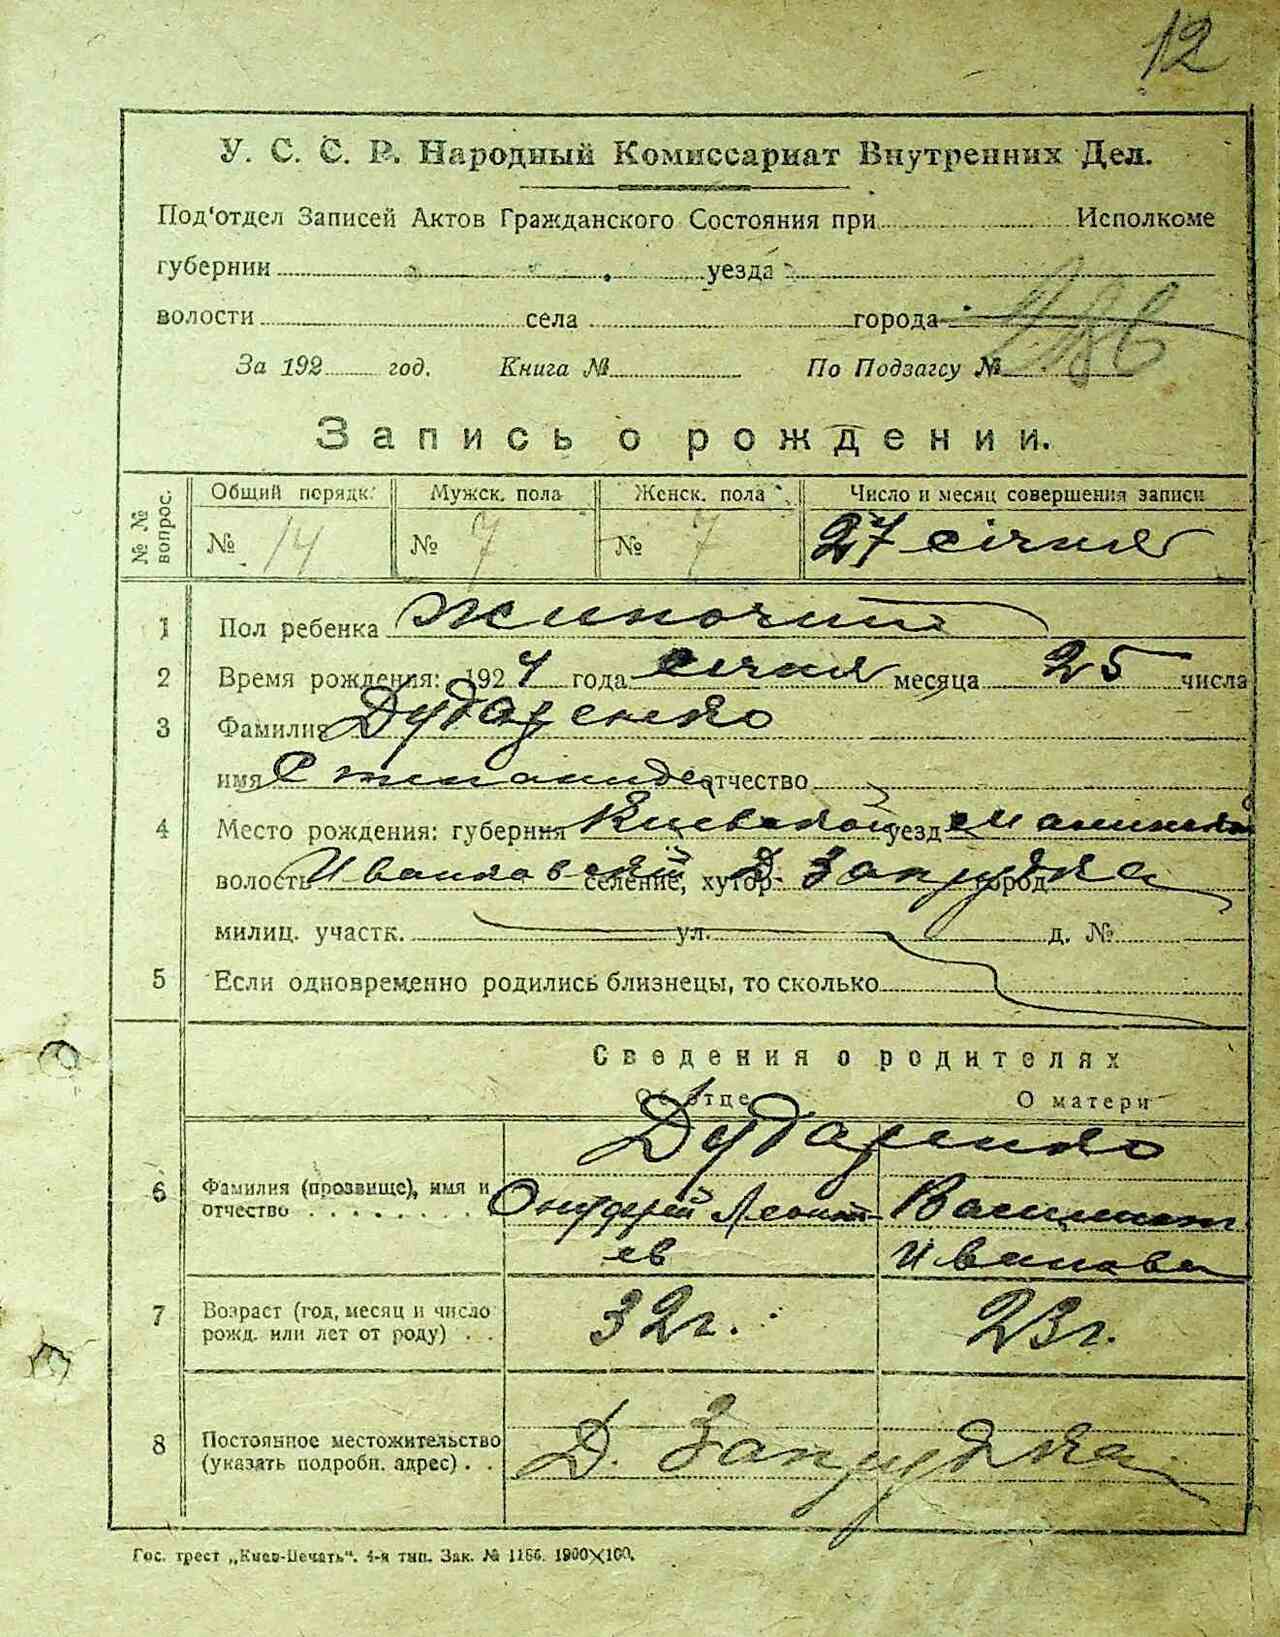 12
У. С. С. Р. Народный Комиссариат Внутренних Дел.
Под'отдел Записей Актов Гражданского Состояния при Исполкоме
губернии уезда
волости села города
За 192 год. Книга № По Подзагсу №
Запись о рождении.
№ № вопрос. Общий порядк. Мужск. пола Женск. пола Число и месяц совершения записи
№ 14 № 7 № 7 27 січня
1 Пол ребенка жиночий
2 Время рождения: 1924 года січня месяца 25 числа
3 Фамилия Дударенко
имя Степанида отчество
4 Место рождения: губерния Киевской уезд
волость Иванковской селение, хутор Д. Запрудка город
милиц. участк. ул. д. №
5 Если одновременно родились близнецы, то сколько
Сведения о родителях
Об отце О матери
Дударенко
6 Фамилия (прозвище), имя и отчество Онуфрий Леонт-
ев Иванова
7 Возраст (год, месяц и число рожд. или лет от роду) 32 г. 23 г.
8 Постоянное местожительство (указать подробн. адрес) Д. Запрудка
Гос. трест „Киев-Печать“. 4-я тип. Зак. № 1166. 1900×100.